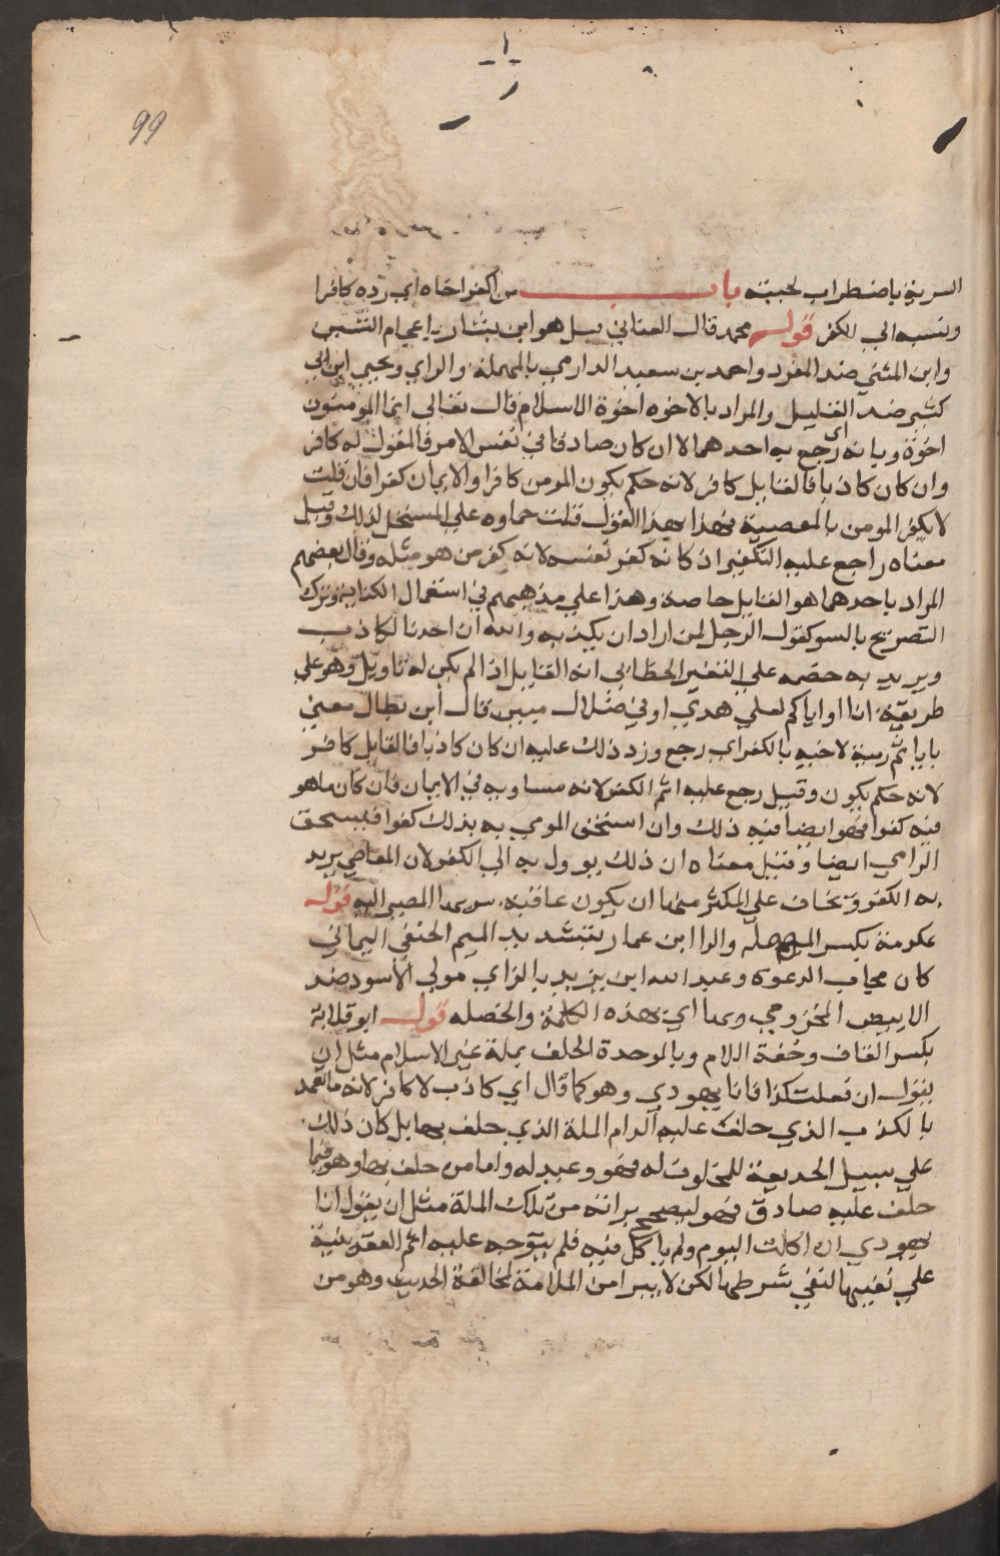 99
السرية باضطراب لحيته باب من اكفر اخاه اي رده كافرا
ونسبه الي الكفر قوله محمد قال الغساني قيل هو ابن بشار باعجام الشين
وابن المثني ضد المفرد واحمد بن سعيد الدارمي بالمهملة والراي ويحيي ابن ابي
كثير ضد القليل والمراد بالاخوه اخوة الاسلام قال تعالي انما المومنون
اخوة وبا به اي رجع به احدهما لا ان كان صادقا في نفس الامر فالمقول له كافر
وان كان كاذبا فالقايل كافر لانه حكم بكون المومن كافرا والايمان كفرا فان قلت
لا يكفر المومن بالمعصية فهذا بهذا القول قلت حملوه علي المستحل لذلك وقيل
معناه راجع عليه التكفير اذ كانه كفر نفسه لانه كفر من هو مثله وقال بعضهم
المراد باحدهما هو القايل خاصة وهذا علي مذهبهم في استعمال الكناية وترك
التصريح بالسو كقول الرجل لمن اراد ان يكذبه والله ان احدنا لكاذب
ويريد به خصمه علي التعيير الخطائي انه القايل اذا لم يكن له تاويل وهو علي
طريقة انا او اياكم لعلي هدي او في ضلال مبين قال ابن بطال معني
با باثم رميه لاخيه بالكفر اي رجع وزر ذلك عليه ان كان كاذبا فالقايل كافر
لانه حكم بكون وقيل رجع عليه اثم الكفر لانه مساو به في الايمان فان كان ما هو
فيه كفرا فهو ايضا فيه ذلك وان استحق المرمي به بذلك كفرا فيستحق
الرامي ايضا وقيل معناه ان ذلك يوول به الي الكفر لان المعاصي بريد
به الكفر ويخاف علي المكثر منها ان يكون عاقبة المصير اليه قوله
عكرمة بكسر المهمله والرا ابن عمار بتشديد الميم الحنفي اليماني
كان مجاب الدعوه وعبد الله ابن يزيد بالزاي مولي الاسود ضد
الابيض المخزومي وبها اي بهذه الكلمة والخصله قوله ابو قلابة
بكسر القاف وخفة اللام وبالموحدة الحلف بملة غير الاسلام مثل ان
يقول ان فعلت كذا فانا يهودي وهو كما قال اي كاذب لا كافر لانه ما تعمد
بالكذب الذي حلف عليه الزام الملة الذي حلف بها بل كان ذلك
علي سبيل الخديعة للمحلوف له فهو وعيد له واما من حلف بها وهو فيما
حلف عليه صادق فهو لتصحيح براته من تلك الملة مثل ان يقول انا
يهودي ان اكلت اليوم ولم ياكل فيه فلم يتوجه عليه اثم العقد بنية
علي نفيها لنفي شرطها لكن لا يبرا من الملامة لمخالفة الحديث وهو من